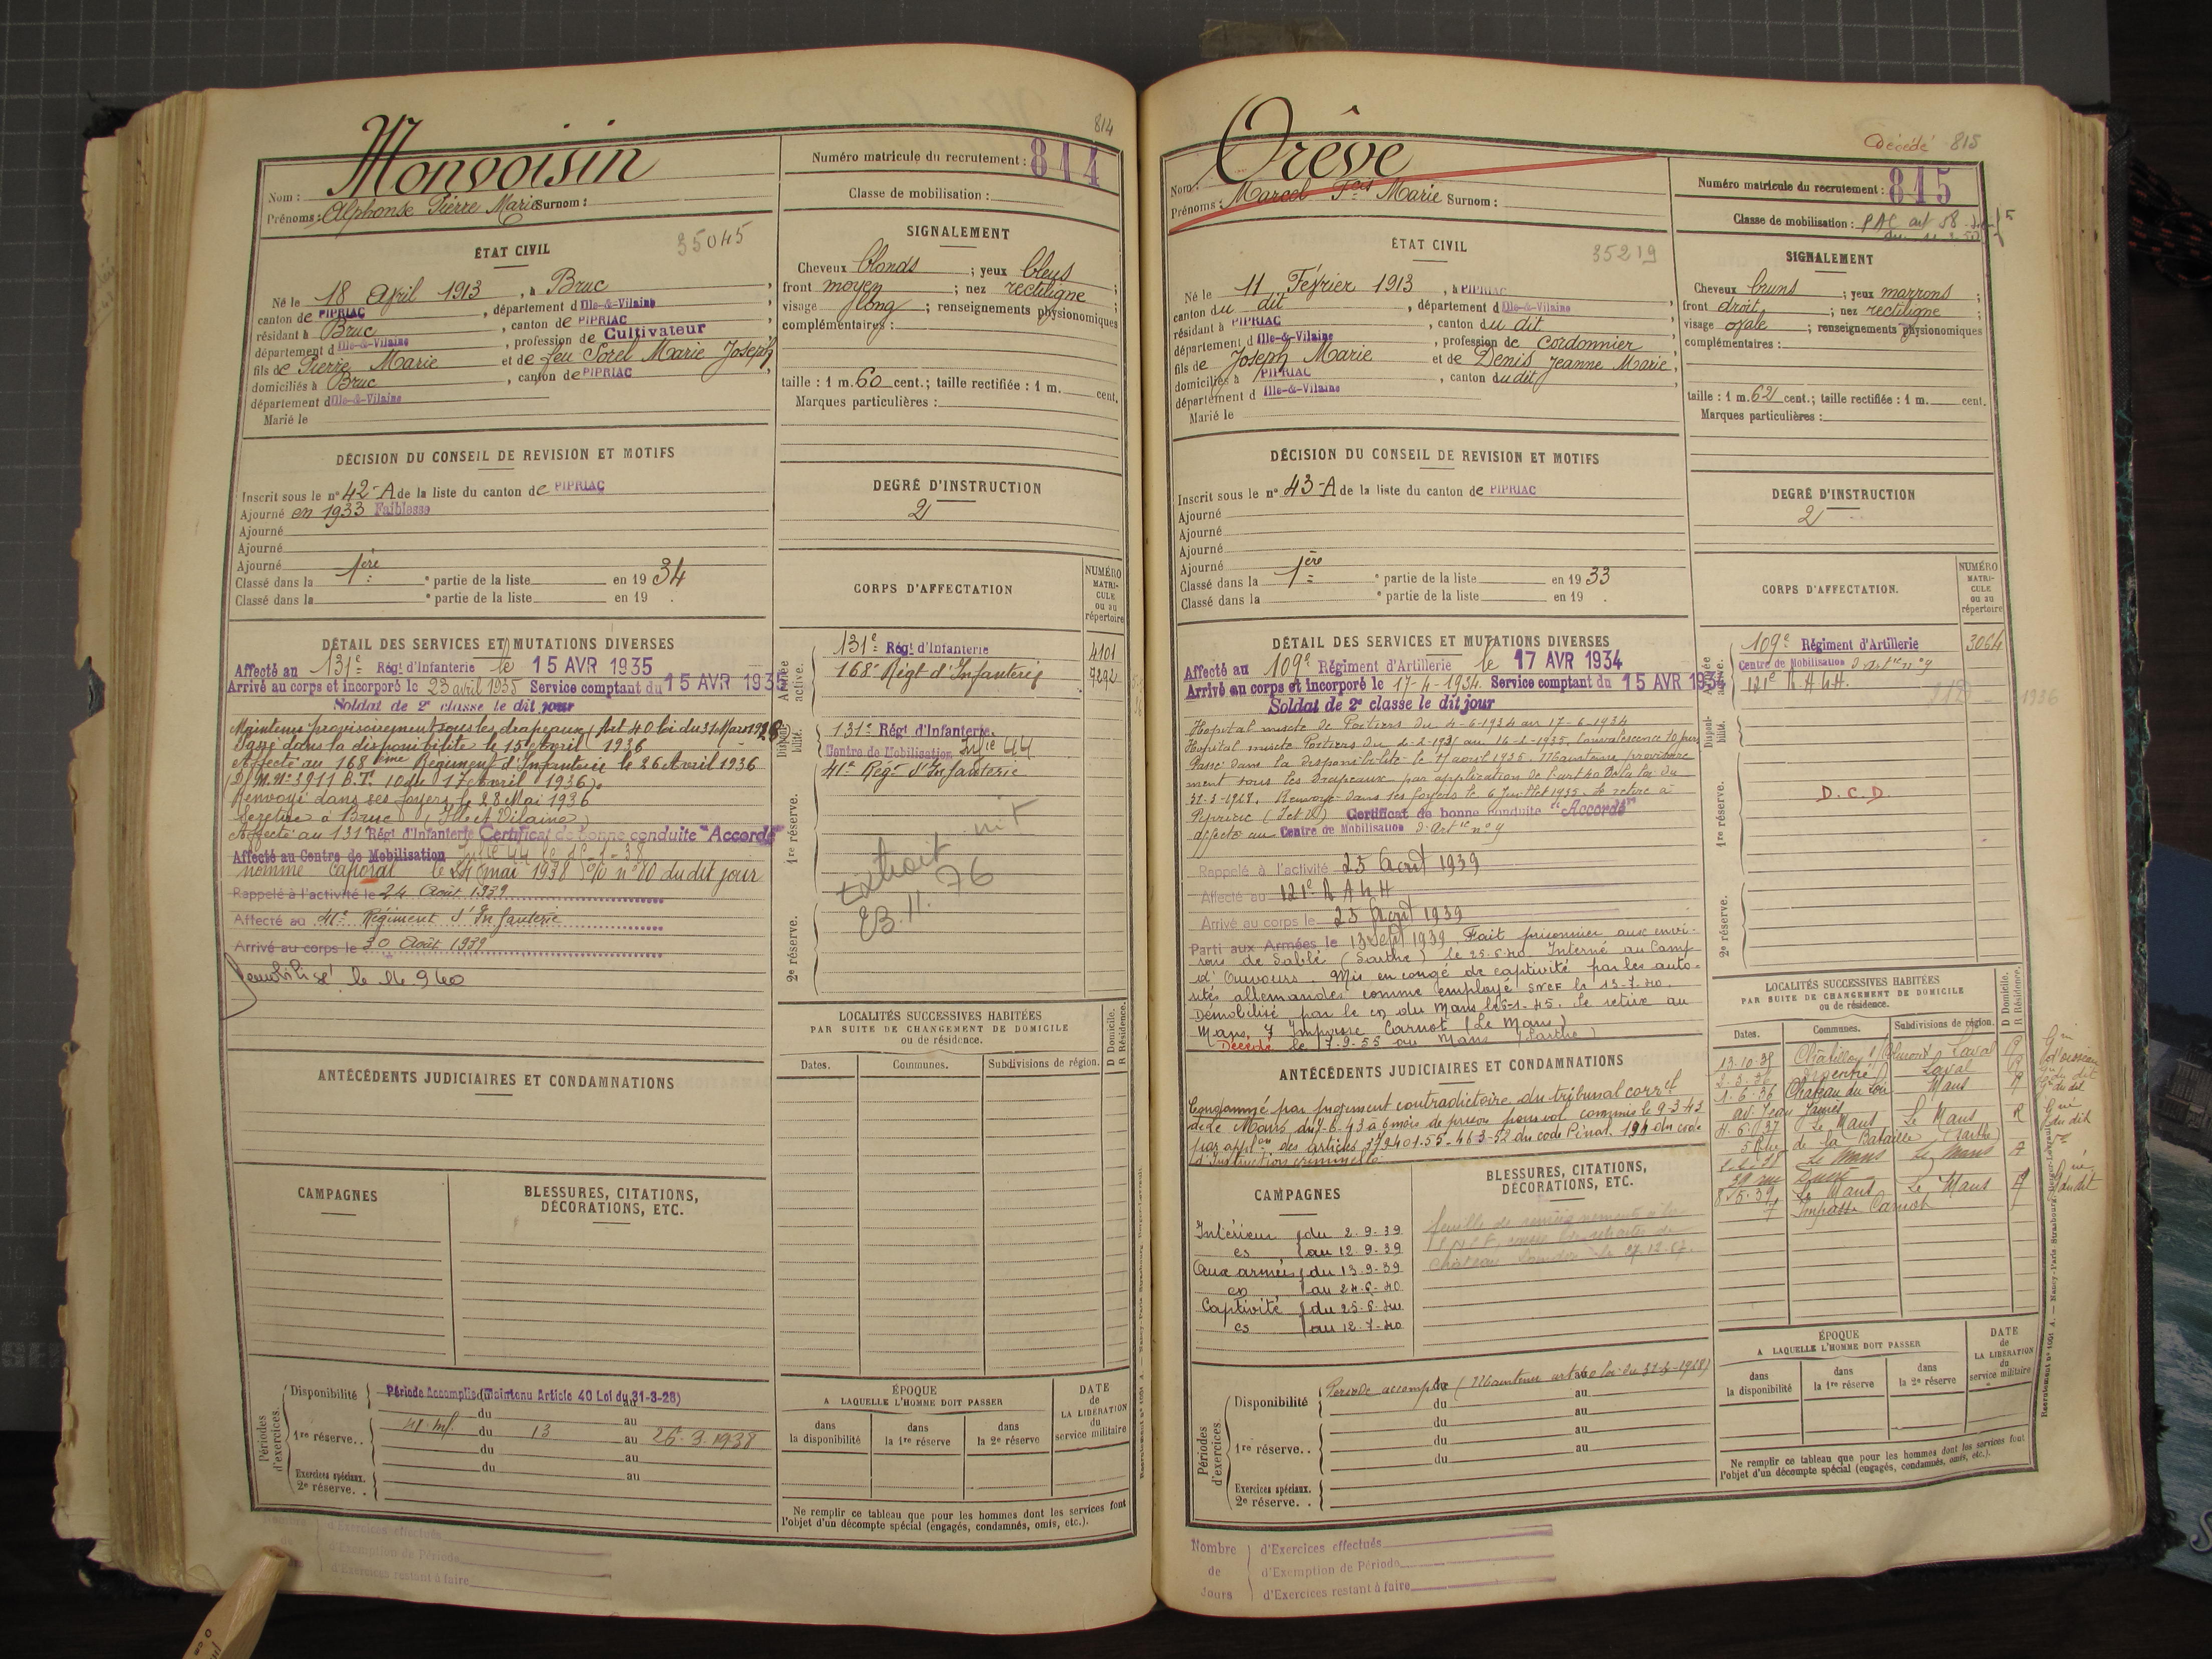 814
Monvoisin
Nom :
Prénoms : Alphonse Pierre Marie Surnom :
Numéro matricule du recrutement : 814
Classe de mobilisation :
ÉTAT CIVIL
35045
Né le 18 Avril 1913, à Bruc,
canton de PIPRIAC, département d Ille-&-Vilaine
résidant à Bruc, canton de PIPRIAC
département d Ille-&-Vilaine, profession de Cultivateur
fils de Pierre Marie et de feu Sorel Marie Joseph,
domiciliés à Bruc, canton de PIPRIAC,
département d Ille-&-Vilaine
Marié le
SIGNALEMENT
Cheveux blonds ; yeux bleus ;
front moyen ; nez rectiligne ;
visage long ; renseignements physionomiques
complémentaires :
taille : 1 m. 60 cent.; taille rectifiée : 1 m. cent.
Marques particulières :
DÉCISION DU CONSEIL DE REVISION ET MOTIFS
Inscrit sous le n° 42-A de la liste du canton de PIPRIAC
Ajourné en 1933 Faiblesse
Ajourné
Ajourné
Ajourné
Classé dans la 1ère partie de la liste en 1934
Classé dans la partie de la liste en 19 .
DEGRÉ D'INSTRUCTION
2
DÉTAIL DES SERVICES ET MUTATIONS DIVERSES
Affecté au 131e Régt d'Infanterie le 15 AVR 1935
Arrivé au corps et incorporé le 23 avril 1935 Service comptant du 15 AVR 1935
Soldat de 2e classe le dit jour
Maintenu provisoirement sous les drapeaux (Art 40 loi du 31 Mars 1928
Passé dans la disponibilité le 15 Avril 1936
Affecté au 168ème Régiment d'Infanterie le 26 Avril 1936
(D.M. N° 3911 B.T. 10 du 17 Avril 1936).
Renvoyé dans ses foyers le 28 Mai 1936
Se retire à Bruc (Ille et Vilaine)
Affecté au 131e Régt d'Infanterie Certificat de bonne conduite "Accordé"
Affecté au Centre de Mobilisation
nommé Caporal le 24 mai 1938 n° 80 du dit jour
Rappelé à l'activité le 24 Août 1939
Affecté au 41e Régiment d'Infanterie
Arrivé au corps le 30 Août 1939
Démobilisé le
CORPS D'AFFECTATION
NUMÉRO MATRICULE ou au répertoire
Armée active.
131e Régt d'Infanterie 4101
168e Régt d'Infanterie 9292
Disponibilité.
131e Régt d'Infanterie.
Centre de Mobilisation 44
41e Régt d'Infanterie
1re réserve.
extrait
23.11.76
2e réserve.
ANTÉCÉDENTS JUDICIAIRES ET CONDAMNATIONS
LOCALITÉS SUCCESSIVES HABITÉES
PAR SUITE DE CHANGEMENT DE DOMICILE
ou de résidence.
Dates. Communes. Subdivisions de région. D Domicile. R Résidence.
CAMPAGNES
BLESSURES, CITATIONS,
DÉCORATIONS, ETC.
Périodes d'exercices.
Disponibilité Période Accomplie (maintenu Article 40 Loi du 31-3-28)
du au
1re réserve.. du 13 au 26.3.1938
du au
du au
Exercices spéciaux.
2e réserve. .
ÉPOQUE
A LAQUELLE L'HOMME DOIT PASSER
dans la disponibilité
dans la 1re réserve
dans la 2e réserve
DATE de LA LIBÉRATION du service militaire
Ne remplir ce tableau que pour les hommes dont les services font
l'objet d'un décompte spécial (engagés, condamnés, omis, etc.).
d'Exercices effectués
d'Exemption de Période
d'Exercices restant à faire
Décédé 815
Orêve
Nom :
Prénoms : Marcel Fcis Marie Surnom :
Numéro matricule du recrutement : 815
Classe de mobilisation :
ÉTAT CIVIL
35219
Né le 11 Février 1913, à PIPRIAC
canton du dit, département d Ille-&-Vilaine
résidant à PIPRIAC, canton du dit
département d Ille-&-Vilaine, profession de cordonnier
fils de Joseph Marie et de Denis Jeanne Marie,
domiciliés à PIPRIAC, canton du dit
département d Ille-&-Vilaine
Marié le
SIGNALEMENT
Cheveux bruns ; yeux marrons ;
front droit ; nez rectiligne ;
visage ovale ; renseignements physionomiques
complémentaires :
taille : 1 m. 62 cent.; taille rectifiée : 1 m. cent.
Marques particulières :
DÉCISION DU CONSEIL DE REVISION ET MOTIFS
Inscrit sous le n° 43-A de la liste du canton de PIPRIAC
Ajourné
Ajourné
Ajourné
Ajourné
Classé dans la 1ère partie de la liste en 1933
Classé dans la partie de la liste en 19 .
DEGRÉ D'INSTRUCTION
2
DÉTAIL DES SERVICES ET MUTATIONS DIVERSES
Affecté au 109e Régiment d'Artillerie le 17 AVR 1934
Arrivé au corps et incorporé le 17-4-1934. Service comptant du 15 AVR 1934
Soldat de 2e classe le dit jour
Hopital mixte de Poitiers du 4-6-1934 au 17-6-1934
Hopital mixte Poitiers du 2-2-1935 au 16-2-1935. Convalescence 10 jours
Passé dans la disponibilité le 17 avril 1935. Maintenu provisoire
ment sous les Drapeaux par application de l'art 40 de la loi du
31-3-1928. Renvoyé dans ses foyers le 6 Juillet 1935. Se retire à
Pipriac (I et V) Certificat de bonne conduite "Accordé"
affecté au Centre de Mobilisation d'Artie n° 9
Rappelé à l'activité 25 Août 1939
Affecté au 121e R A L H
Arrivé au corps le 25 Août 1939
Parti aux Armées le 13 Sept 1939. Fait prisonnier aux envi-
rons de Sablé (Sarthe) le 25.6.40. Interné au Camp
d'Auvours. Mis en congé de captivité par les auto-
rités allemandes comme employé SNCF le 13-7-40.
Démobilisé par le cn du Mans le 6-1-45. Se retire au
Mans, 7 Impasse Carnot (Le Mans)
Décédé le 17-9-55 au Mans (Sarthe)
CORPS D'AFFECTATION.
NUMÉRO MATRICULE ou au répertoire
109e Régiment d'Artillerie 3064
Centre de Mobilisation d'Artie n° 9
121e R.A.L.H.
1936
Disponibilité.
1re réserve.
D.C.D
2e réserve.
ANTÉCÉDENTS JUDICIAIRES ET CONDAMNATIONS
Condamné par jugement contradictoire du tribunal correl
de Le Mans du 7-6-43 à 6 mois de prison pour vol commis le 9-3-43
par applon des articles 379.401.55-463-52 du code Pénal, 194 du code
d'Instruction criminelle.
LOCALITÉS SUCCESSIVES HABITÉES
PAR SUITE DE CHANGEMENT DE DOMICILE
ou de résidence.
Dates. Communes. Subdivisions de région. D Domicile. R Résidence.
13-10-35 Châtillon s/ Colmont Laval R
Laval R
1.6.36 Château du Loir Mans R
av. Jean Jaurès
4.6.37 Le Mans Le Mans R
5 Rue de la Bataille (Sarthe)
Le Mans Le Mans R
8.5.39, Le Mans Le Mans R
7 Impasse Carnot
CAMPAGNES
Intérieur du 2.9.39
au 12.9.39
Aux armées du 13.9.39
au 24.6.40
Captivité du 25.6.40
au 12.7.40
BLESSURES, CITATIONS,
DÉCORATIONS, ETC.
feuille de renseignements
Périodes d'exercices.
Disponibilité Période accomplie (Maintenu art 40 loi du 31-3-1928)
du au
du au
1re réserve.. du au
du au
Exercices spéciaux.
2e réserve. .
ÉPOQUE
A LAQUELLE L'HOMME DOIT PASSER
dans la disponibilité
dans la 1re réserve
dans la 2e réserve
DATE de LA LIBÉRATION du service militaire
Ne remplir ce tableau que pour les hommes dont les services font
l'objet d'un décompte spécial (engagés, condamnés, omis, etc.).
Nombre d'Exercices effectués
de d'Exemption de Période
Jours d'Exercices restant à faire